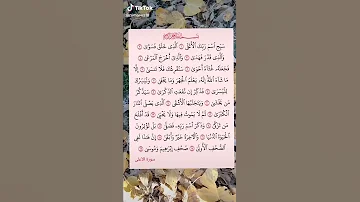 TikTok
بسم الله الرحمن الرحيم
سَبِّحِ ٱسْمَ رَبِّكَ ٱلْأَعْلَى ۝ ٱلَّذِى خَلَقَ فَسَوَّىٰ ۝
وَٱلَّذِى قَدَّرَ فَهَدَىٰ ۝ وَٱلَّذِىٓ أَخْرَجَ ٱلْمَرْعَىٰ ۝
فَجَعَلَهُۥ غُثَآءً أَحْوَىٰ ۝ سَنُقْرِئُكَ فَلَا تَنسَىٰٓ ۝ إِلَّا
مَا شَآءَ ٱللَّهُ إِنَّهُۥ يَعْلَمُ ٱلْجَهْرَ وَمَا يَخْفَىٰ ۝ وَنُيَسِّرُكَ
لِلْيُسْرَىٰ ۝ فَذَكِّرْ إِن نَّفَعَتِ ٱلذِّكْرَىٰ ۝ سَيَذَّكَّرُ
مَن يَخْشَىٰ ۝ وَيَتَجَنَّبُهَا ٱلْأَشْقَى ۝ ٱلَّذِى يَصْلَى ٱلنَّارَ
ٱلْكُبْرَىٰ ۝ ثُمَّ لَا يَمُوتُ فِيهَا وَلَا يَحْيَىٰ ۝ قَدْ أَفْلَحَ
مَن تَزَكَّىٰ ۝ وَذَكَرَ ٱسْمَ رَبِّهِۦ فَصَلَّىٰ ۝ بَلْ تُؤْثِرُونَ
ٱلْحَيَوٰةَ ٱلدُّنْيَا ۝ وَٱلْءَاخِرَةُ خَيْرٌ وَأَبْقَىٰٓ ۝ إِنَّ هَٰذَا لَفِى
ٱلصُّحُفِ ٱلْأُولَىٰ ۝ صُحُفِ إِبْرَٰهِيمَ وَمُوسَىٰ ۝
سورة الاعلى